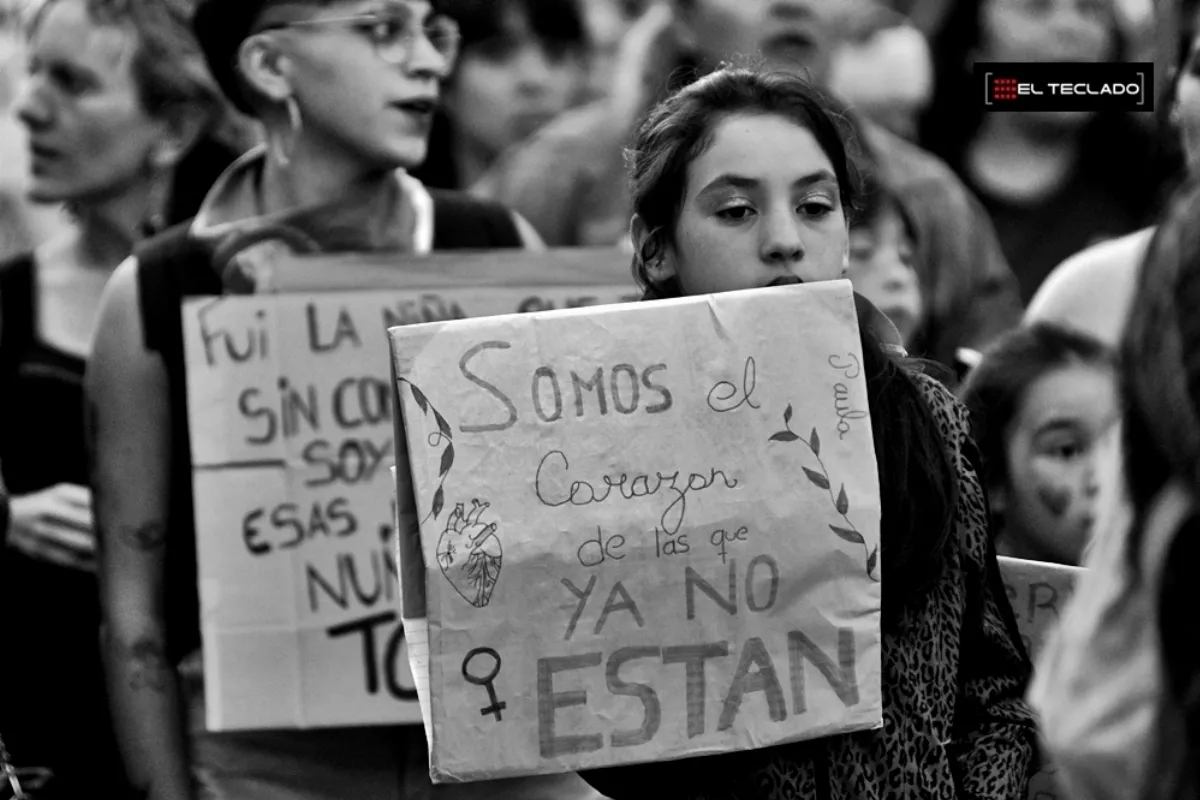 EL TECLADO
Fui LA NIÑA QUE
SIN
SOY
ESAS
TO
SOMOS el
Corazon
de las que
YA NO
ESTAN
Paula